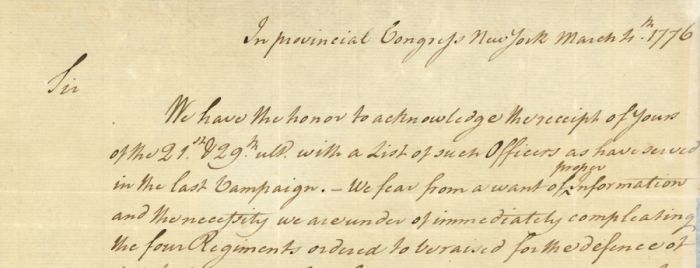 In provincial Congress New York March 4th. 1776
Sir
We have the honor to acknowledge the receipt of yours
of the 21st. & 29th. ulto. with a List of such Officers as have served
in the last Campaign. – We fear from a want of proper information
and the necessity we are under of immediately compleating
the four Regiments ordered to be raised for the defence of